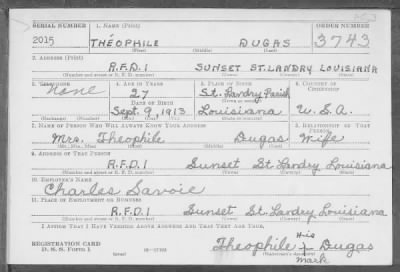 SERIAL NUMBER 1. NAME (Print) ORDER NUMBER
2015 THÉOPHILE DUGAS 3743
(First) (Middle) (Last)
2. ADDRESS (Print)
R.F.D. 1 SUNSET ST. LANDRY LOUISIANA
(Number and street or R. F. D. number) (Town) (County) (State)
3. TELEPHONE 4. AGE IN YEARS 5. PLACE OF BIRTH 6. COUNTRY OF CITIZENSHIP
None 27 St. Landry Parish
DATE OF BIRTH (Town or county)
Sept. 9, 1913 Louisiana U.S.A.
(Exchange) (Number) (Mo.) (Day) (Yr.) (State or country)
7. NAME OF PERSON WHO WILL ALWAYS KNOW YOUR ADDRESS 8. RELATIONSHIP OF THAT PERSON
Mrs. Theophile Dugas Wife
(Mr., Mrs., Miss) (First) (Middle) (Last)
9. ADDRESS OF THAT PERSON
R.F.D. 1 Sunset St. Landry Louisiana
(Number and street or R. F. D. number) (Town) (County) (State)
10. EMPLOYER'S NAME
Charles Savoie
11. PLACE OF EMPLOYMENT OR BUSINESS
R.F.D. 1 Sunset St. Landry Louisiana
(Number and street or R. F. D. number) (Town) (County) (State)
I AFFIRM THAT I HAVE VERIFIED ABOVE ANSWERS AND THAT THEY ARE TRUE.
his
REGISTRATION CARD Theophile x Dugas
D. S. S. Form 1 (Registrant's signature)
mark